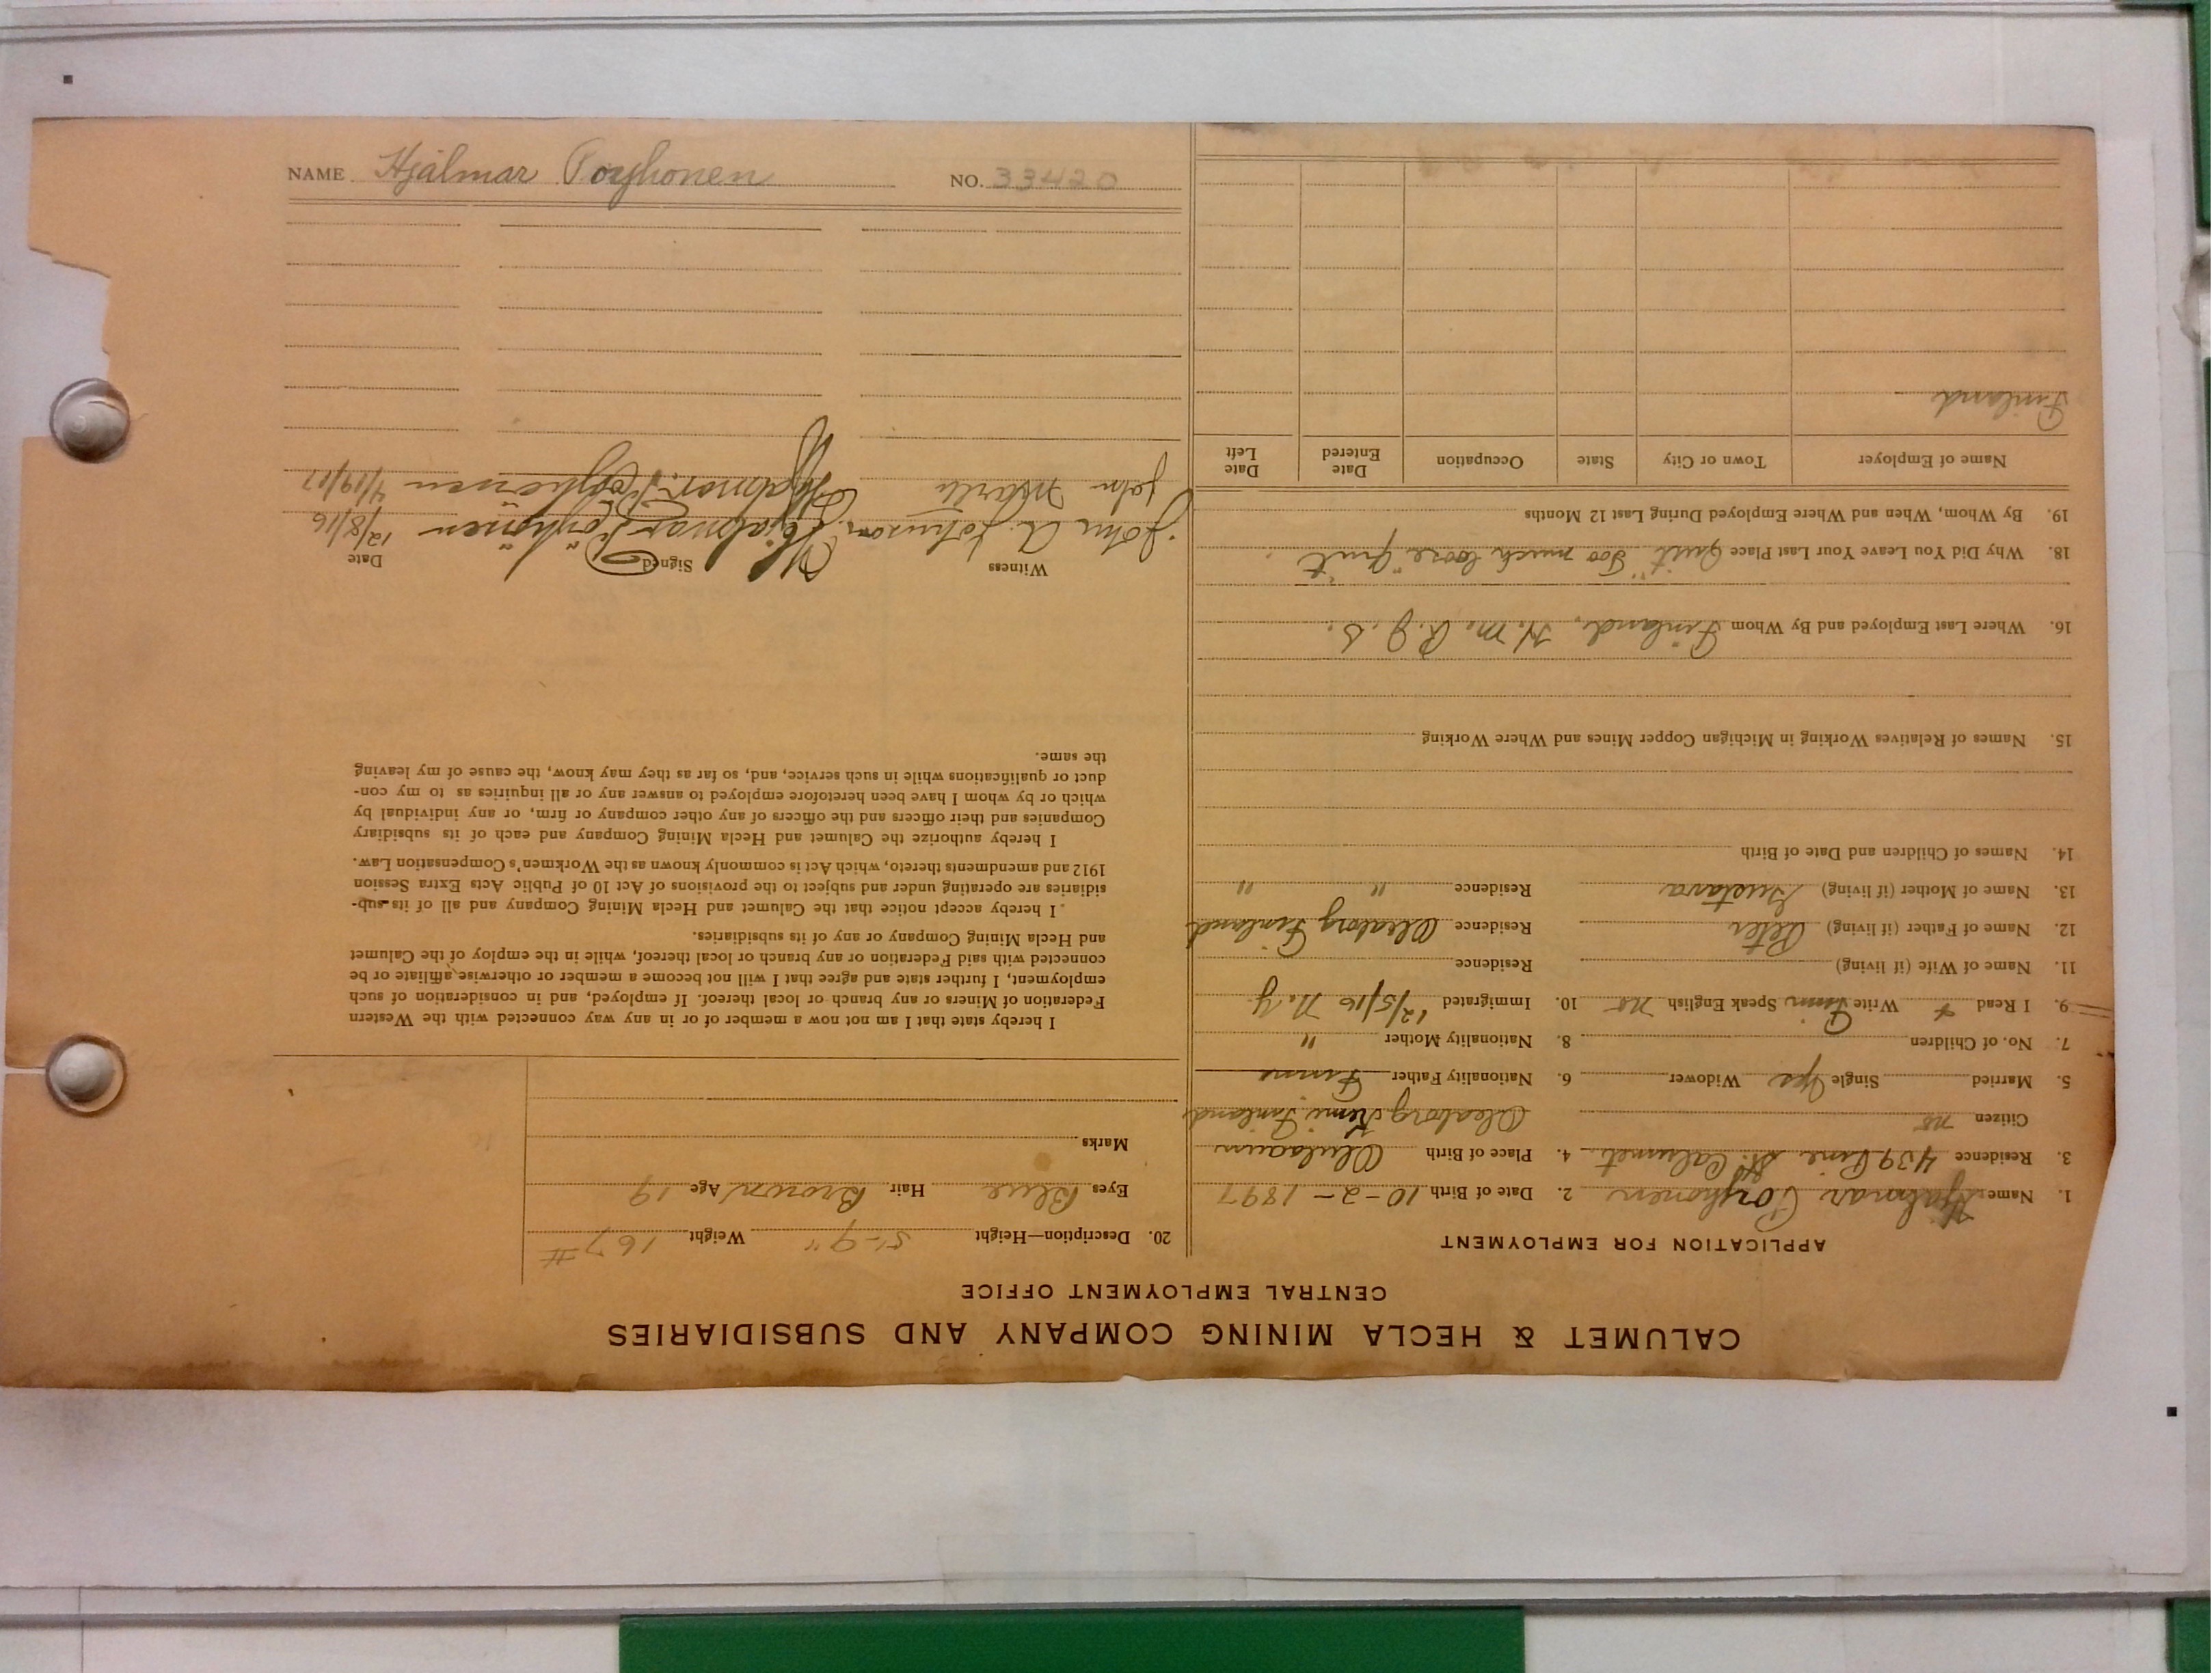 CALUMET & HECLA MINING COMPANY AND SUBSIDIARIES
CENTRAL EMPLOYMENT OFFICE
APPLICATION FOR EMPLOYMENT
1. Name Hjalmar Poyhonen 2. Date of Birth 10-2-1897
3. Residence 439 Pine St. Calumet 4. Place of Birth
Citizen no Uleaborg Kemi Finland
5. Married Single yes Widower 6. Nationality Father Finne
7. No. of Children 8. Nationality Mother "
9. I Read & Write Finn Speak English no 10. Immigrated 12/5/16 N.Y
11. Name of Wife (if living) Residence
12. Name of Father (if living) Peter Residence Uleaborg Finland
13. Name of Mother (if living) Gustava Residence " "
14. Names of Children and Date of Birth
15. Names of Relatives Working in Michigan Copper Mines and Where Working
16. Where Last Employed and By Whom Finland, H.M. R.J.S.
18. Why Did You Leave Your Last Place Quit "Too much loose" Quit
19. By Whom, When and Where Employed During Last 12 Months
Name of Employer Town or City State Occupation Date Entered Date Left
Finland
20. Description—Height 5'-9" Weight 167 #
Eyes Blue Hair Brown Age 19
Marks
I hereby state that I am not now a member of or in any way connected with the Western
Federation of Miners or any branch or local thereof. If employed, and in consideration of such
employment, I further state and agree that I will not become a member or otherwise affiliate or be
connected with said Federation or any branch or local thereof, while in the employ of the Calumet
and Hecla Mining Company or any of its subsidiaries.
I hereby accept notice that the Calumet and Hecla Mining Company and all of its sub-
sidiaries are operating under and subject to the provisions of Act 10 of Public Acts Extra Session
1912 and amendments thereto, which Act is commonly known as the Workmen's Compensation Law.
I hereby authorize the Calumet and Hecla Mining Company and each of its subsidiary
Companies and their officers and the officers of any other company or firm, or any individual by
which or by whom I have been heretofore employed to answer any or all inquiries as to my con-
duct or qualifications while in such service, and, so far as they may know, the cause of my leaving
the same.
Witness Signed Date
John A. Johnson Hjalmar Pöyhönen 12/8/16
John Hjalmar Poyhonen 4/19/17
NAME Hjalmar Poyhonen NO. 33420